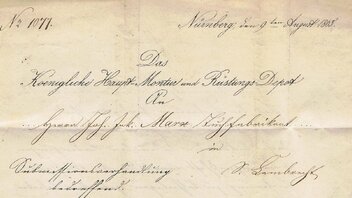 No 1077.
Nürnberg, den 9ten August 1868.
Das
Koenigliche Haupt-Montur und Rüstungs-Depot
An
Herrn Joh. Jak. Marx Tuchfabrikant
in
Submissionsverhandlung St. Lambrecht
betreffend.